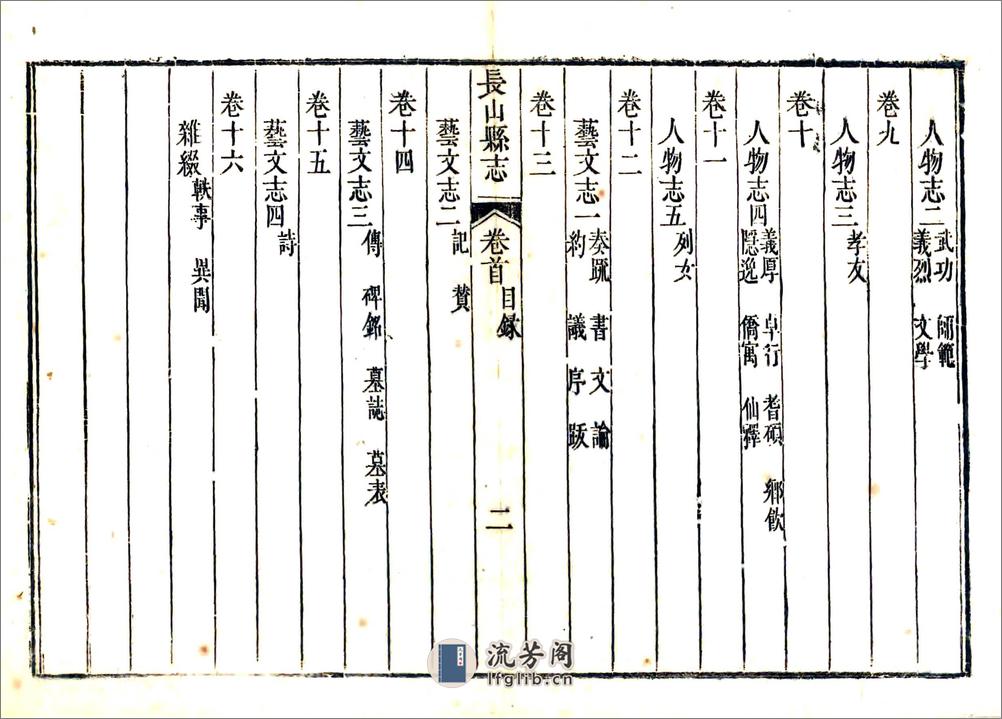 人物志二 武功 師範 義烈 文學
卷九
人物志三 孝友
卷十
人物志四 義厚 卓行 耆碩 鄉飲 隱逸 僑寓 仙釋
卷十一
人物志五 列女
卷十二
藝文志一 奏疏 書 文 論 約 議 序 跋
卷十三
長山縣志 卷首 目錄 二
藝文志二 記 贊
卷十四
藝文志三 傳 碑銘 墓誌 墓表
卷十五
藝文志四 詩
卷十六
雜綴 軼事 異聞
流芳阁
lfglib.cn